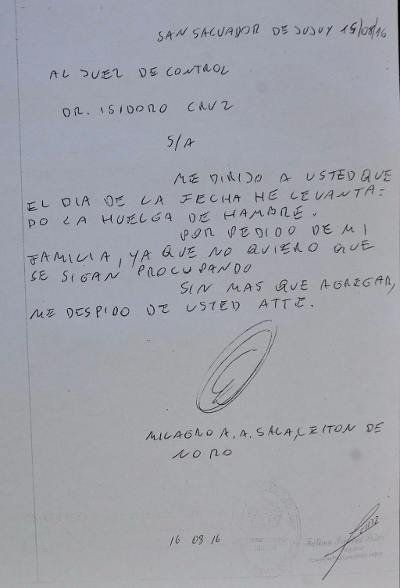 SAN SALVADOR DE JUJUY 15/08/16
AL JUEZ DE CONTROL
DR. ISIDORO CRUZ
S/A
ME DIRIJO A USTED QUE
EL DIA DE LA FECHA HE LEVANTA=
DO LA HUELGA DE HAMBRE.
POR PEDIDO DE MI
FAMILIA, YA QUE NO QUIERO QUE
SE SIGAN PROCUPANDO
SIN MAS QUE AGREGAR,
ME DESPIDO DE USTED ATTE.
MILAGRO A. A. SALA, LEITON DE
NORO
16 08 16